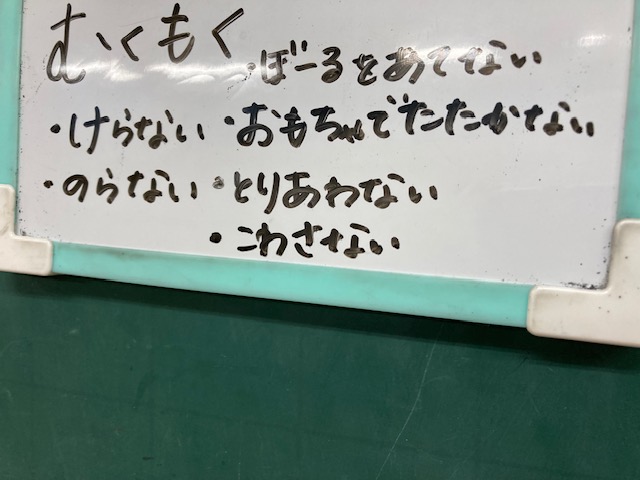 むくもく
・ぼーるをあてない
・けらない ・おもちゃでたたかない
・のらない ・とりあわない
・こわさない